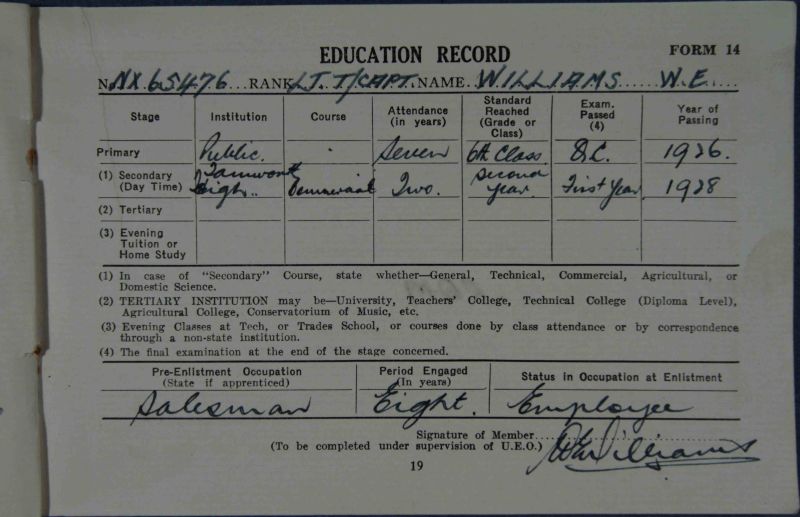 EDUCATION RECORD
FORM 14
No. NX 65476 RANK LT. T/CAPT. NAME WILLIAMS W.E.
Stage Institution Course Attendance (in years) Standard Reached (Grade or Class) Exam. Passed (4) Year of Passing
Primary Public. - Seven 6th Class. Q.C. 1926.
(1) Secondary (Day Time) Tamworth High.. Commercial Two. Second Year. First Year 1928
(2) Tertiary
(3) Evening Tuition or Home Study
(1) In case of "Secondary" Course, state whether—General, Technical, Commercial, Agricultural, or
Domestic Science.
(2) TERTIARY INSTITUTION may be—University, Teachers' College, Technical College (Diploma Level),
Agricultural College, Conservatorium of Music, etc.
(3) Evening Classes at Tech, or Trades School, or courses done by class attendance or by correspondence
through a non-state institution.
(4) The final examination at the end of the stage concerned.
Pre-Enlistment Occupation (State if apprenticed) Period Engaged (In years) Status in Occupation at Enlistment
Salesman Eight. Employee
Signature of Member WEWilliams
(To be completed under supervision of U.E.O.)
19